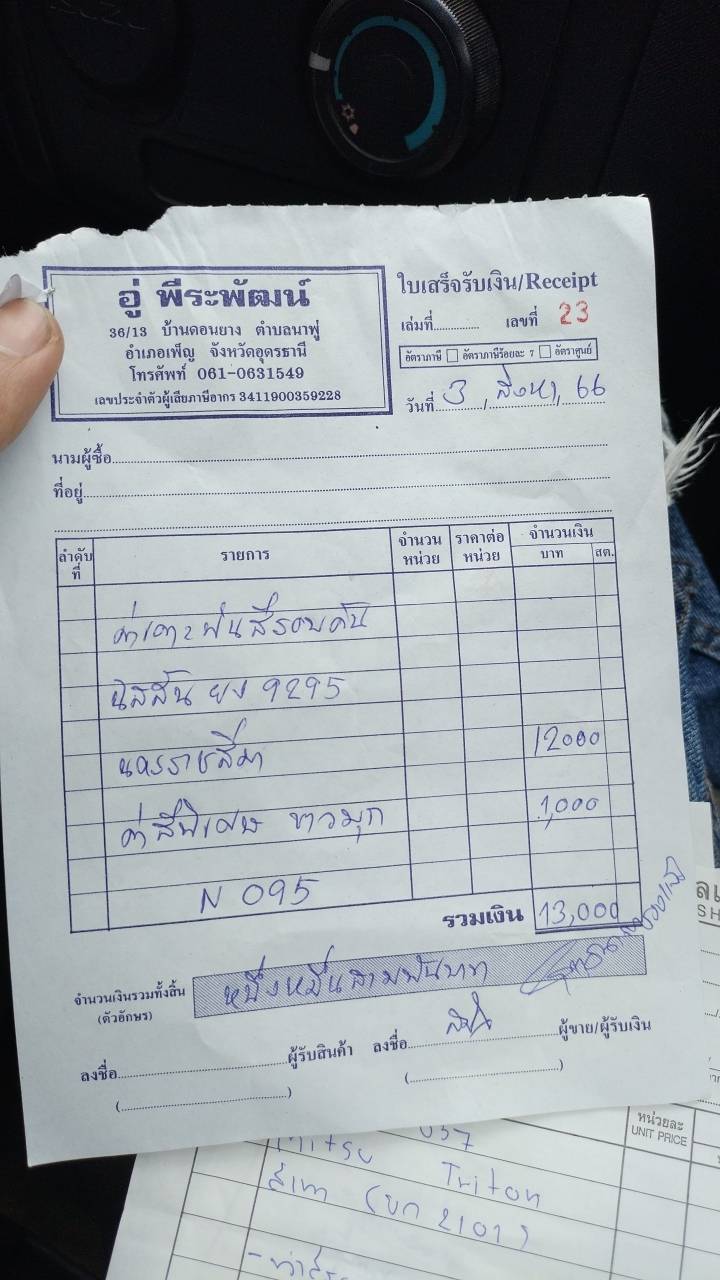 อู่ พีระพัฒน์
36/13 บ้านดอนยาง ตำบลนาพู่
อำเภอเพ็ญ จังหวัดอุดรธานี
โทรศัพท์ 061-0631549
เลขประจำตัวผู้เสียภาษีอากร 3411900359228
ใบเสร็จรับเงิน/Receipt
เล่มที่ เลขที่ 23
อัตราภาษี อัตราภาษีร้อยละ 7 อัตราศูนย์
วันที่ 3 / สิงหา / 66
นามผู้ซื้อ
ที่อยู่
ลำดับที่ รายการ จำนวนหน่วย ราคาต่อหน่วย จำนวนเงิน บาท สต.
ค่าเคาะพ่นสีรอบคัน
นิสสัน ยง 9295
นครราชสีมา 12000
ค่าสีพิเศษ ขาวมุก 1,000
N 095
รวมเงิน 13,000
จำนวนเงินรวมทั้งสิ้น (ตัวอักษร) หนึ่งหมื่นสามพันบาท
ลงชื่อ ผู้รับสินค้า ลงชื่อ ผู้ขาย/ผู้รับเงิน
หน่วยละ
UNIT PRICE
057
Mitsu Triton
สีเทา (บก 2101)